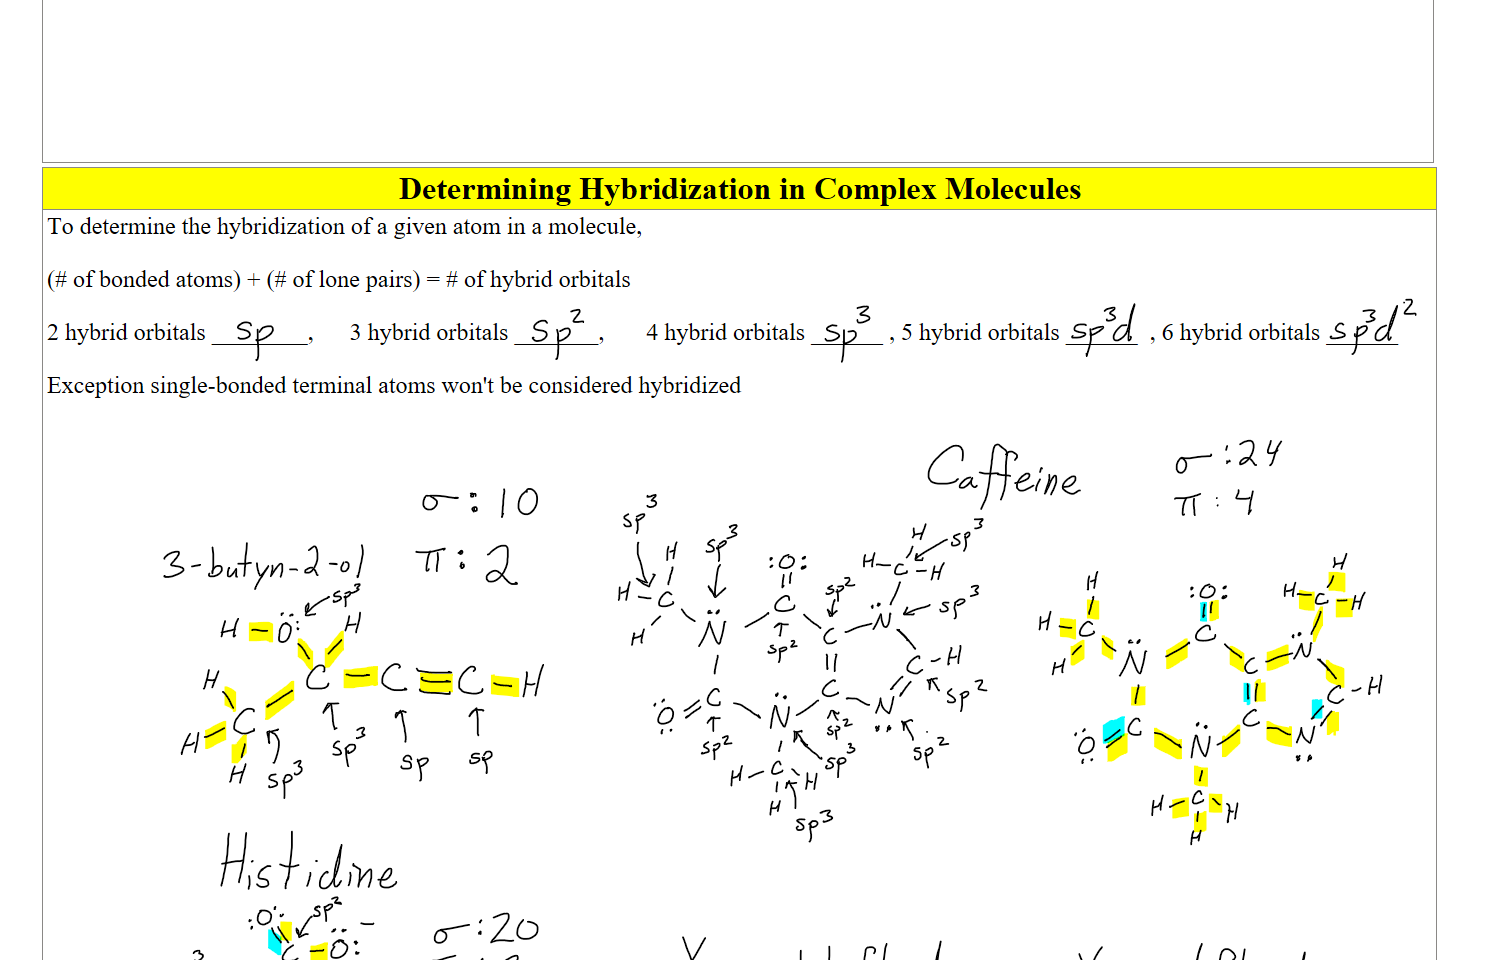 Determining Hybridization in Complex Molecules
To determine the hybridization of a given atom in a molecule,
(# of bonded atoms) + (# of lone pairs) = # of hybrid orbitals
2 hybrid orbitals sp, 3 hybrid orbitals sp², 4 hybrid orbitals sp³, 5 hybrid orbitals sp³d, 6 hybrid orbitals sp³d²
Exception single-bonded terminal atoms won't be considered hybridized
3-butyn-2-ol
σ: 10
π: 2
sp³
H-Ö: H
H C-C≡C-H
H-C sp³ sp sp
H sp³
Caffeine
σ: 24
π: 4
sp³ sp³ :O: H sp³
H H-C-H
H-C C sp² N̈ sp³
H N̈ sp² C C-H
Ö=C N̈ C N sp²
sp² sp² sp²
H-C-H sp³
H sp³
H :O: H
H-C C H-C-H
H N̈ C N̈
Ö=C C C-H
N̈ N
H-C-H
H
Histidine
:O: sp² −
C-Ö:
σ: 20